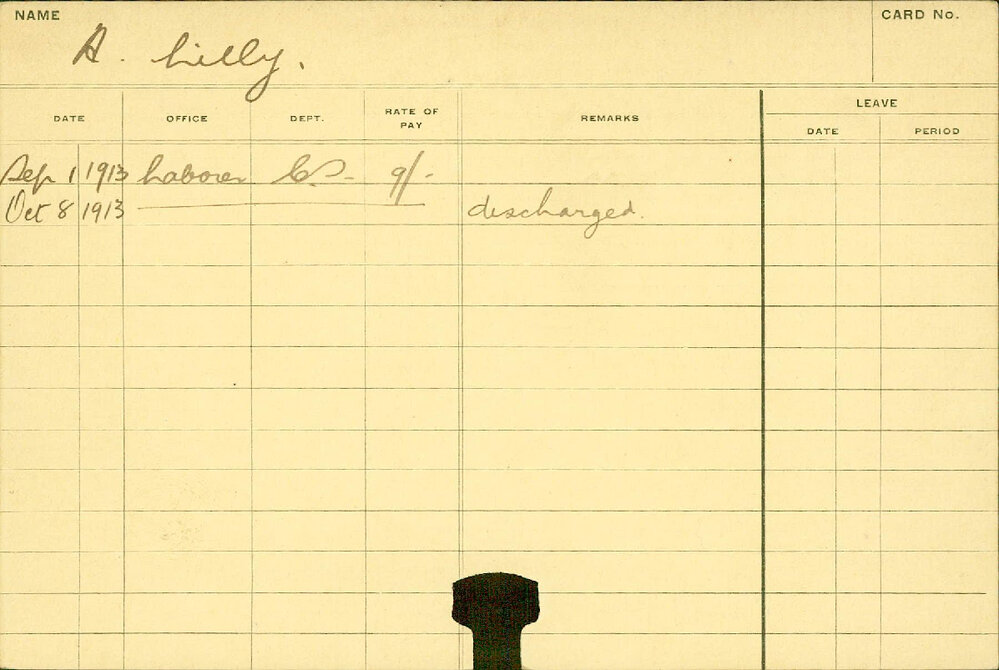 NAME
CARD No.
A. Lilly.
LEAVE
DATE OFFICE DEPT. RATE OF PAY REMARKS DATE PERIOD
Sep 1 1913 Laborer 9/-
Oct 8 1913 discharged.